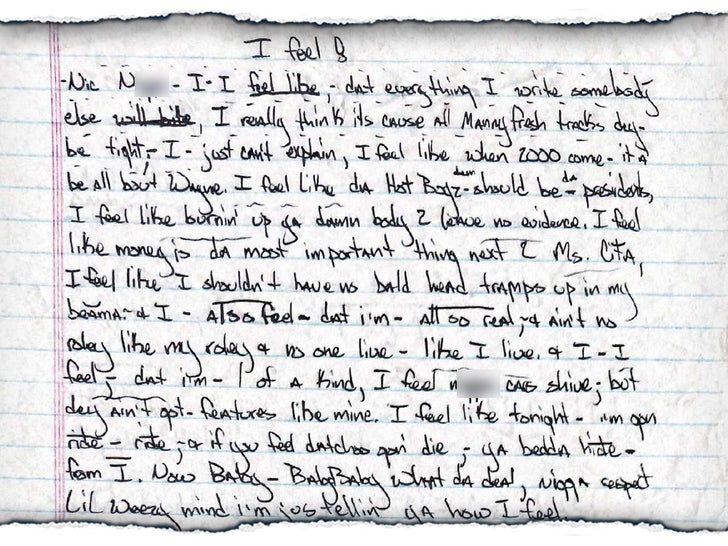 I feel
-Nic N - I-I feel like, - dat everything I write somebody
else will bite, I really think its cause all Manny fresh tracks dey-
be tight,- I - just can't explain, I feel like when 2000 come - it'a
be all bout Wayne. I feel like da Hot Boyz dem - should be - da presidents,
I feel like burnin' up ya damn body 2 leave no evidence. I feel
like money is da most important thing next 2 Ms. Cita,
I feel like I shouldn't have no bald head tramps up in my
beama - & I - also feel - dat i'm - all so real,-& ain't no
roley like my roley & no one live - like I live. & I - I
feel,- dat i'm - 1 of a kind, I feel n shive; but
dey ain't got - features like mine. I feel like tonight - i'm gon
ride - ride,-& if you feel datchoo gon' die,- ya bedda hide -
from I. Now Baby - BabyBaby what da deal, nigga respect
Lil Weezy mind i'm jus tellin' ya how I feel.